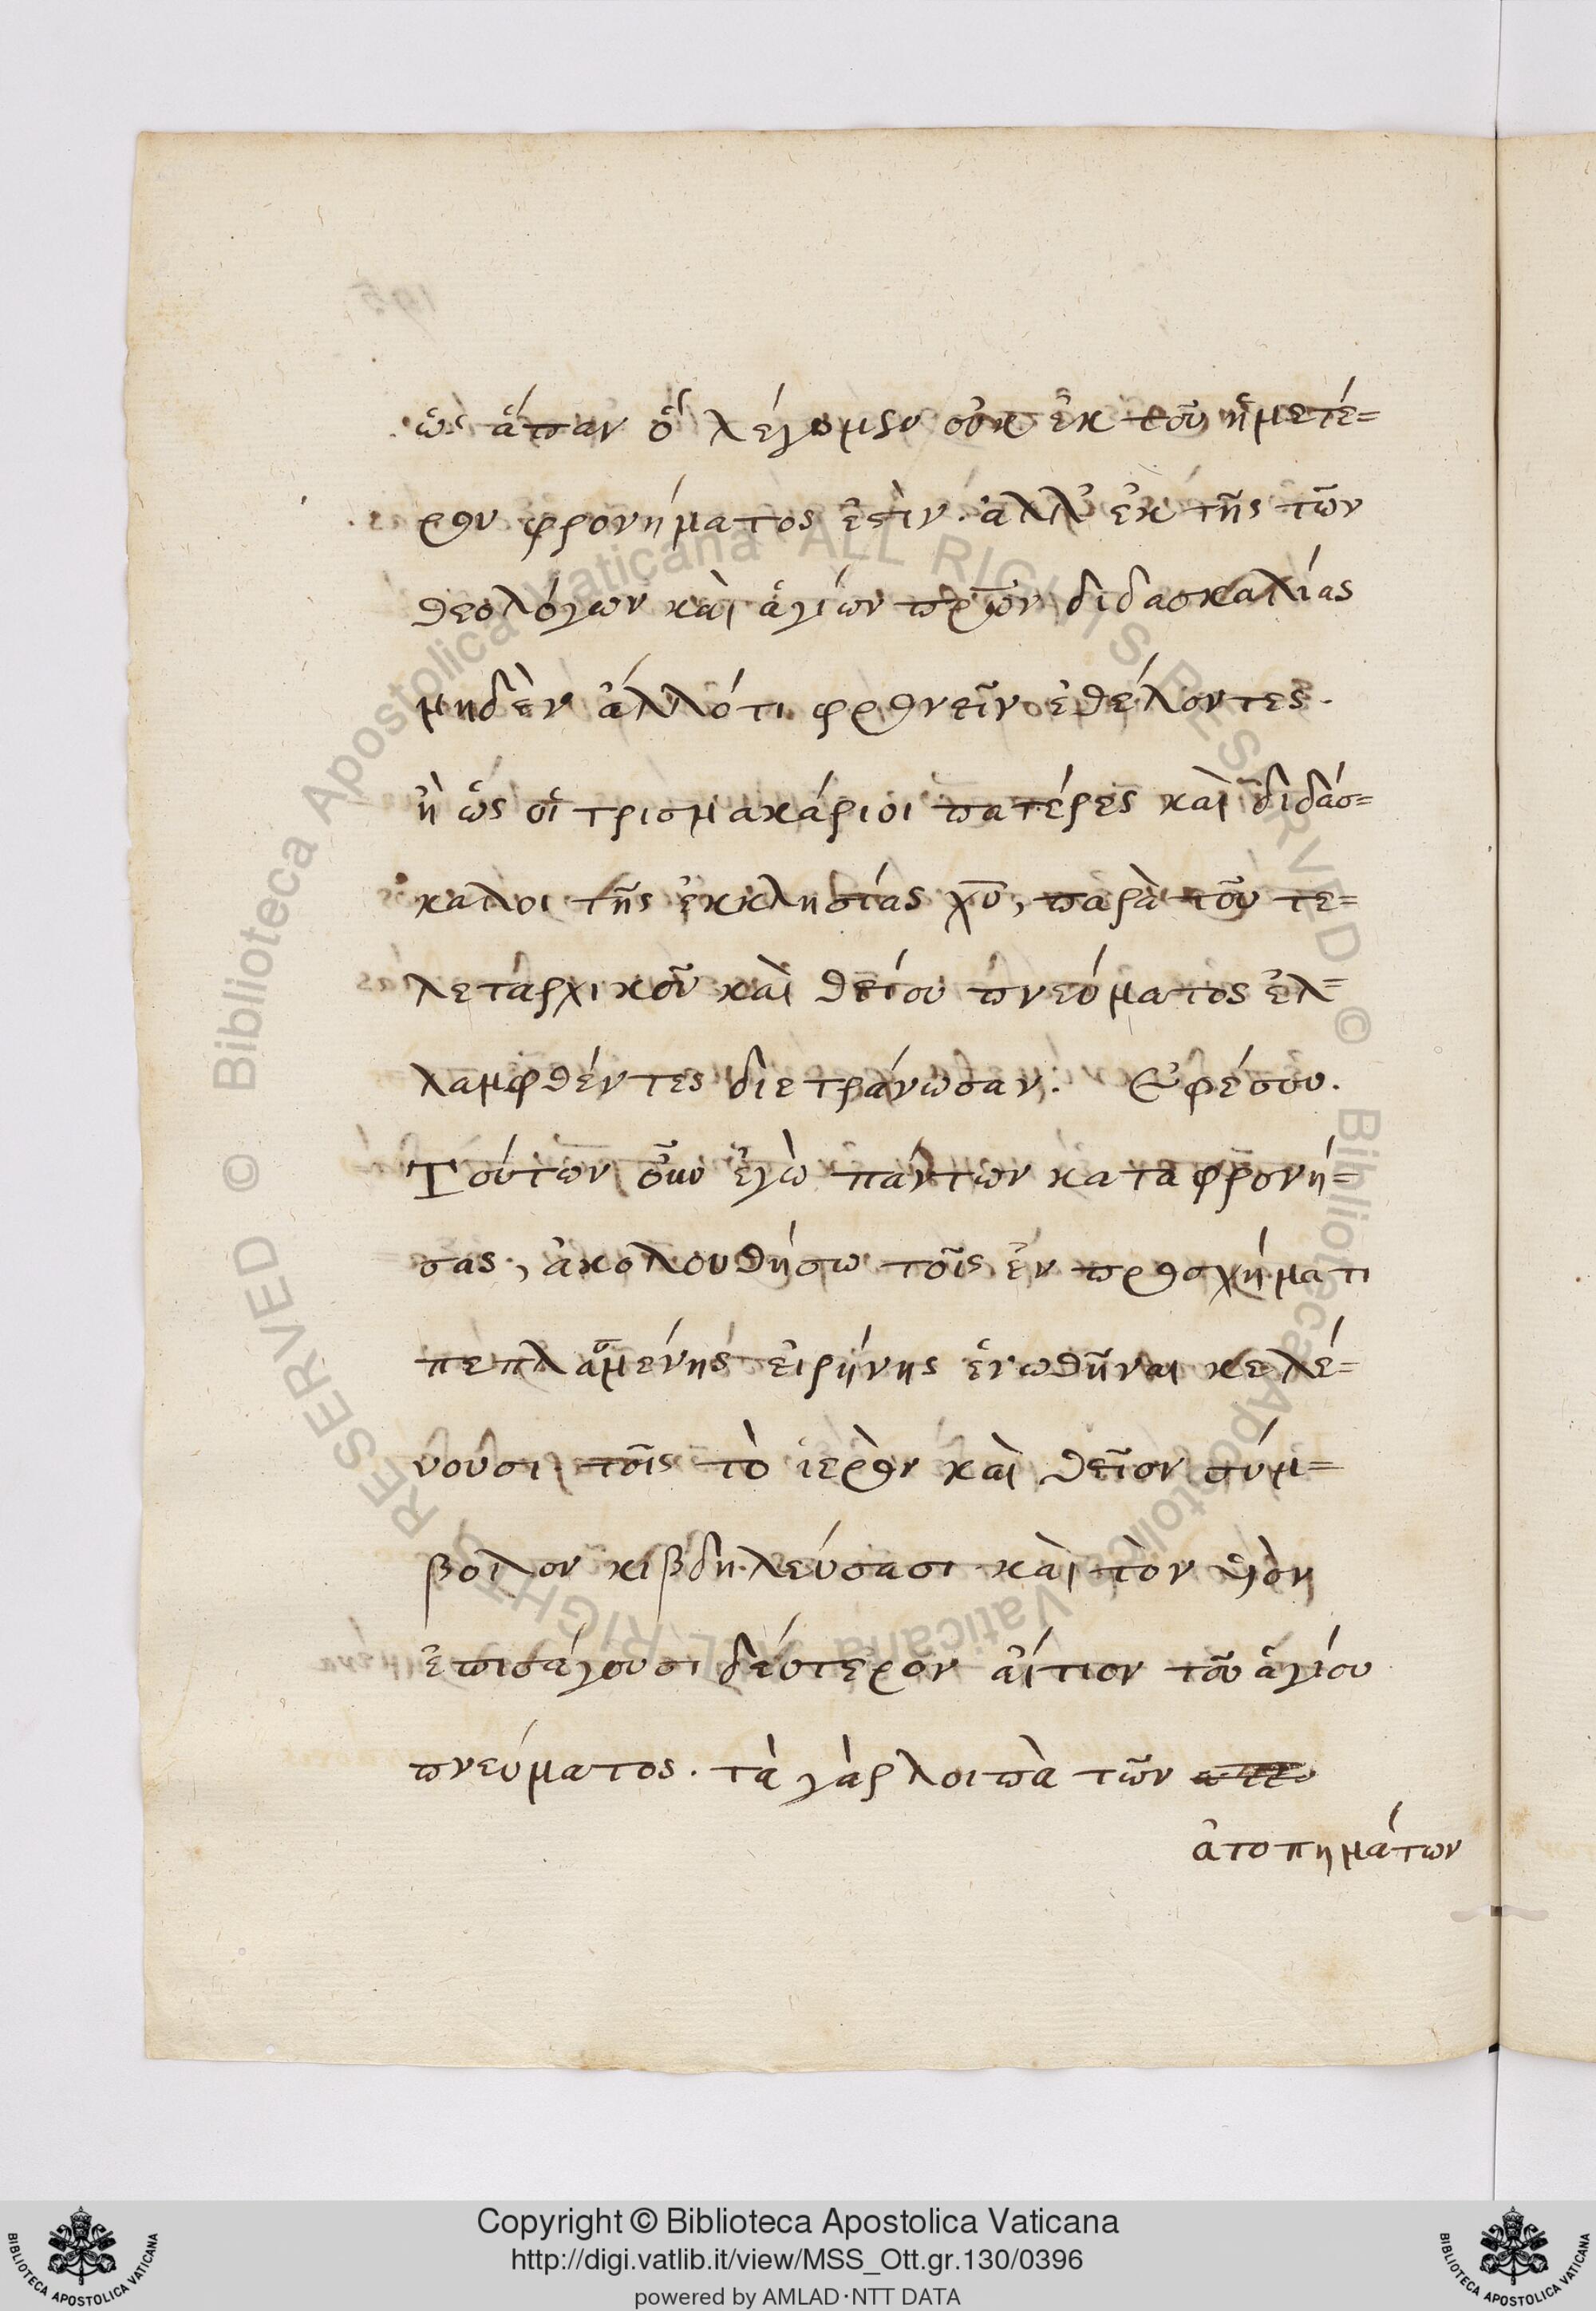 ὡς ἅπαν ὃ λέγομεν οὐκ ἐκ τοῦ ἡμετέ=
ρου φρονήματος ἐστὶν. ἀλλ' ἐκ τῆς τῶν
θεολόγων καὶ ἁγίων πρ̅ων διδασκαλίας
μηδὲν ἄλλότι φρονεῖν ἐθέλοντες.
ἢ ὡς οἱ τρισμακάριοι πατέρες καὶ διδάσ=
καλοι τῆς ἐκκλησίας χ̅υ̅, παρὰ τοῦ τε=
λεταρχικοῦ καὶ θείου πνεύματος ἐλ=
λαμφθέντες διετράνωσαν. Ἐφέσου.
Τούτων οὖν ἐγὼ πάντων καταφρονή=
σας, ἀκολουθήσω τοῖς ἐν προσχήματι
πεπλασμένης εἰρήνης ἑνωθῆναι κελέ=
υουσι τοῖς τὸ ἱερὸν καὶ θεῖον σύμ=
βολον κιβδηλεύσασι καὶ τὸν υἱὸν
ἐπισάγουσι δεύτερον αἴτιον τοῦ ἁγίου
πνεύματος. τὰ γὰρ λοιπὰ τῶν
ἀτοπημάτων
© Biblioteca Apostolica Vaticana ALL RIGHTS RESERVED
© Biblioteca Apostolica Vaticana ALL RIGHTS RESERVED
Copyright © Biblioteca Apostolica Vaticana
http://digi.vatlib.it/view/MSS_Ott.gr.130/0396
powered by AMLAD·NTT DATA
BIBLIOTECA APOSTOLICA VATICANA
BIBLIOTECA APOSTOLICA VATICANA